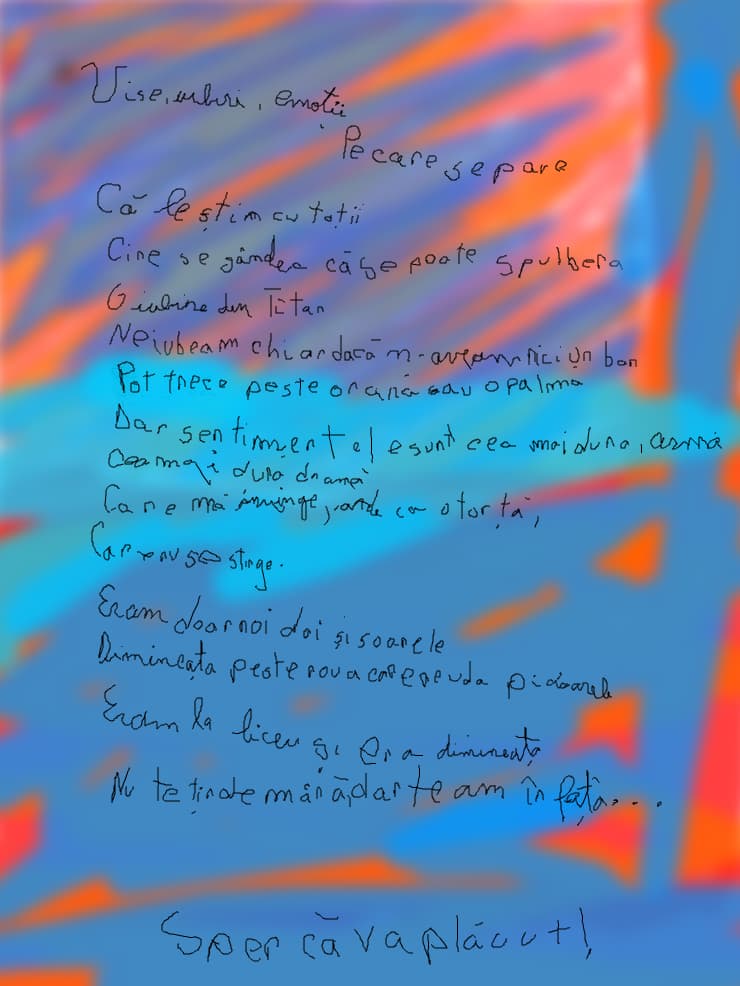 Vise, iubiri, emoții
Pe care se pare
Că le știm cu toții
Cine se gândea că se poate spulbera
O iubire din Titan
Ne iubeam chiar dacă n-aveam nici un ban
Pot trece peste o rană sau o palma
Dar sentimentele sunt cea mai dura, armă
Cea mai dura dramă
Care mă, arde ca o torță,
Care nu se stinge.
Eram doar noi doi și soarele
Dimineața peste roua care ne uda picioarele
Eram la liceu și era dimineață
Nu te țin de mână, dar te am în față...
Sper că va plăcut!